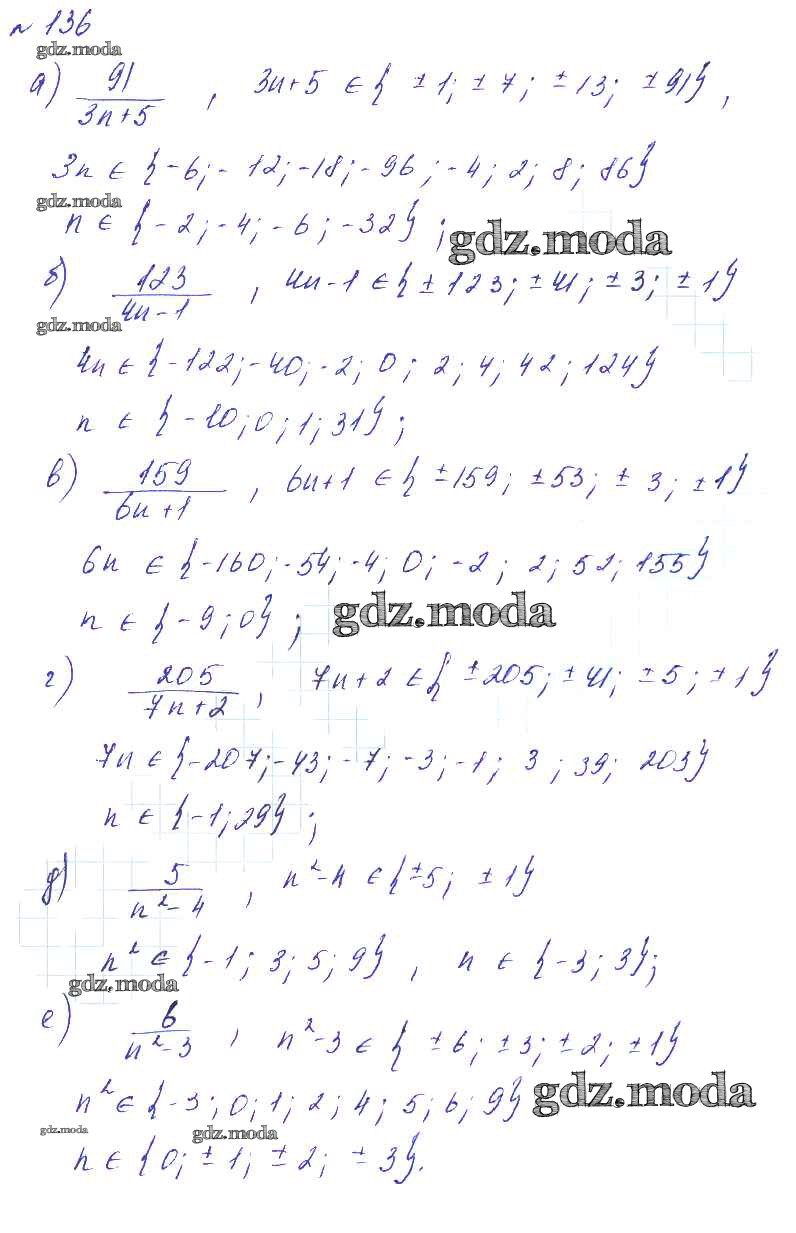 № 136
gdz.moda
а) 91/(3n+5) , 3n+5 ∈ { ±1; ±7; ±13; ±91} ,
3n ∈ {-6; -12; -18; -96; -4; 2; 8; 86}
gdz.moda
n ∈ {-2; -4; -6; -32} ;
gdz.moda
б) 123/(4n-1) , 4n-1 ∈ { ±123; ±41; ±3; ±1}
gdz.moda
4n ∈ {-122; -40; -2; 0; 2; 4; 42; 124}
n ∈ {-10; 0; 1; 31} ;
в) 159/(6n+1) , 6n+1 ∈ { ±159; ±53; ±3; ±1}
6n ∈ {-160; -54; -4; 0; -2; 2; 52; 155}
n ∈ {-9; 0} ;
gdz.moda
г) 205/(7n+2) , 7n+2 ∈ { ±205; ±41; ±5; ±1}
7n ∈ {-207; -43; -7; -3; -1; 3; 39; 203}
n ∈ {-1; 29} ;
д) 5/(n²-4) , n²-4 ∈ { ±5; ±1}
n² ∈ {-1; 3; 5; 9} , n ∈ {-3; 3};
gdz.moda
е) 6/(n²-3) , n²-3 ∈ { ±6; ±3; ±2; ±1}
n² ∈ {-3; 0; 1; 2; 4; 5; 6; 9}
gdz.moda
gdz.moda
gdz.moda
n ∈ {0; ±1; ±2; ±3}.